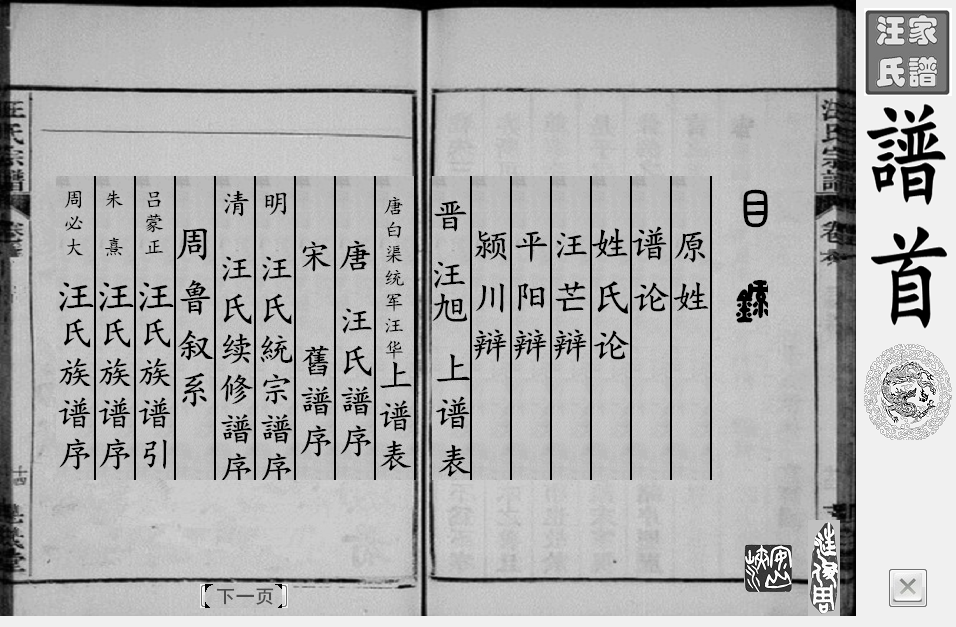 汪家
氏譜
譜首
目錄
原姓
谱论
姓氏论
汪芒辩
平阳辩
颍川辩
晋 汪旭 上谱表
唐白渠统军汪华上谱表
唐 汪氏譜序
宋 舊譜序
明 汪氏統宗譜序
清 汪氏续修譜序
周鲁叙系
吕蒙正 汪氏族谱引
朱熹 汪氏族谱序
周必大 汪氏族谱序
汪氏宗譜
下一页